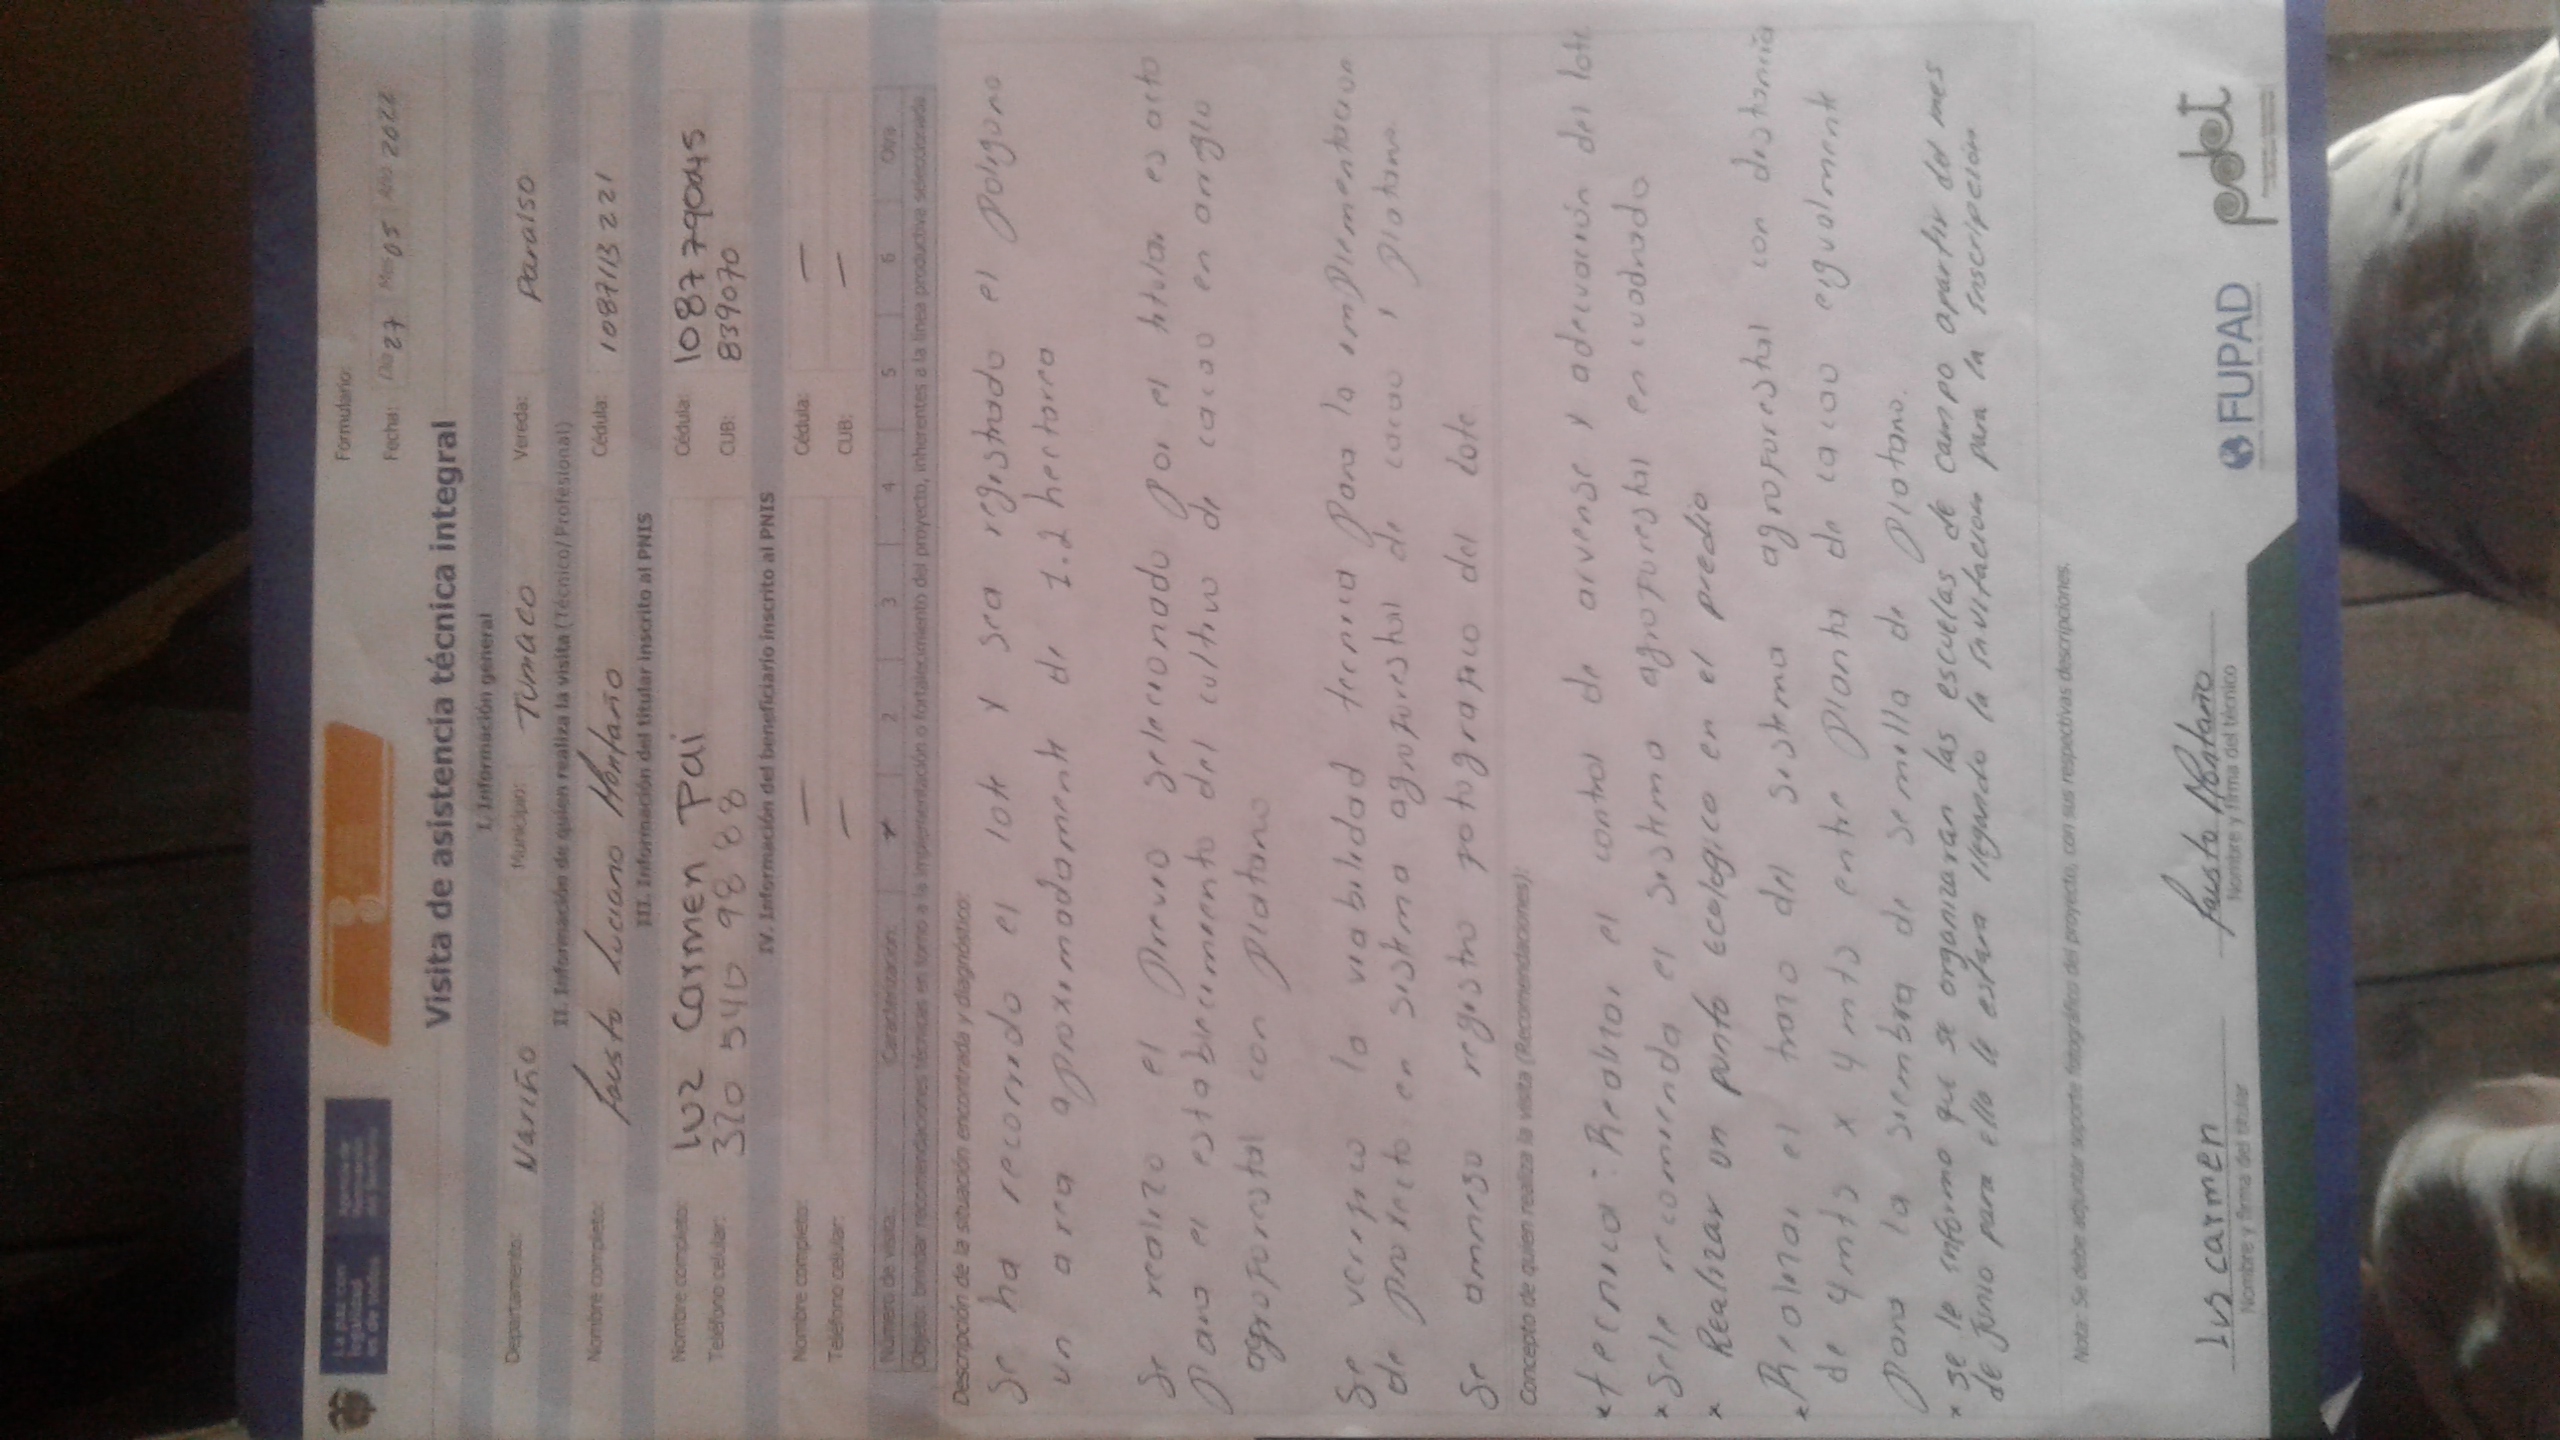 La paz con legalidad es de todos
Agencia de Renovación del Territorio
Formulario:
Fecha: Día 27 Mes 05 Año 2022
Visita de asistencia técnica integral
I. Información general
Departamento: Nariño Municipio: Tumaco Vereda: Paraíso
II. Información de quien realiza la visita (Técnico/Profesional)
Nombre completo: Fausto Luciano Montaño Cédula: 1087113221
III. Información del titular inscrito al PNIS
Nombre completo: Luz Carmen Pai Cédula: 1087790045
Teléfono celular: 320 540 98 88 CUB: 839070
IV. Información del beneficiario inscrito al PNIS
Nombre completo: — Cédula: —
Teléfono celular: — CUB: —
Número de visita: Caracterización: x 2 3 4 5 6 Otra
Objeto: brindar recomendaciones técnicas en torno a la implementación o fortalecimiento del proyecto, inherentes a la línea productiva seleccionada.
Descripción de la situación encontrada y diagnóstico:
Se ha recorrido el lote y sea registrado el poligono
un area aproximadamente de 1.2 hectarea
Se realizo el previo selecionado por el titular es acto
para el establecimiento del cultivo de cacao en arreglo
agroforestal con platano
Se verifico la viabilidad tecnica para la implementacion
de proyecto en sistema agroforestal de cacao y platano.
Se anneso registro fotografico del lote
Concepto de quien realiza la visita (Recomendaciones):
* tecnica: Realizar el control de arvense y adecuación del lote
* Sele recomienda el sistema agroforestal en cuadrado
* Realizar un punto ecologico en el predio
* Realizar el trazo del sistema agroforestal con destania
de 4 mts x 4 mts entre planta de cacao egualmente
para la siembra de semilla de platano.
* se le informo que se organizaran las escuelas de campo apartir del mes
de junio para ello le estara llegando la invitacion para la inscripcion
Nota: Se debe adjuntar soporte fotográfico del proyecto, con sus respectivas descripciones.
Lus carmen
Nombre y firma del titular
Fausto Montaño
Nombre y firma del técnico
FUPAD
pdet